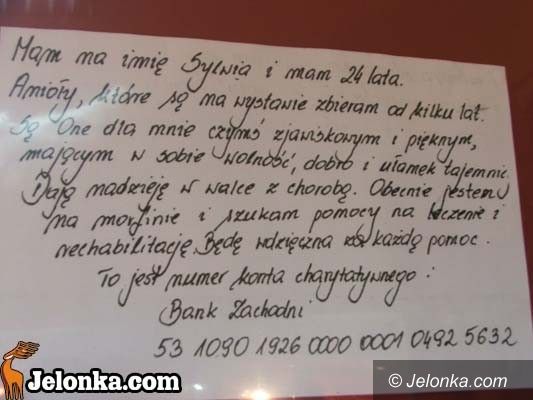 Mam na imię Sylwia i mam 24 lata.
Anioły, które są na wystawie zbieram od kilku lat.
Są One dla mnie czymś zjawiskowym i pięknym,
mającym w sobie wolność, dobro i ułamek tajemnic.
Dają nadzieję w walce z chorobą. Obecnie jestem
na morfinie i szukam pomocy na leczenie i
rechabilitację. Będę wdzięczna za każdą pomoc.
To jest numer konta charytatywnego:
Bank Zachodni
53 1090 1926 0000 0001 0492 5632
Jelonka.com
© Jelonka.com